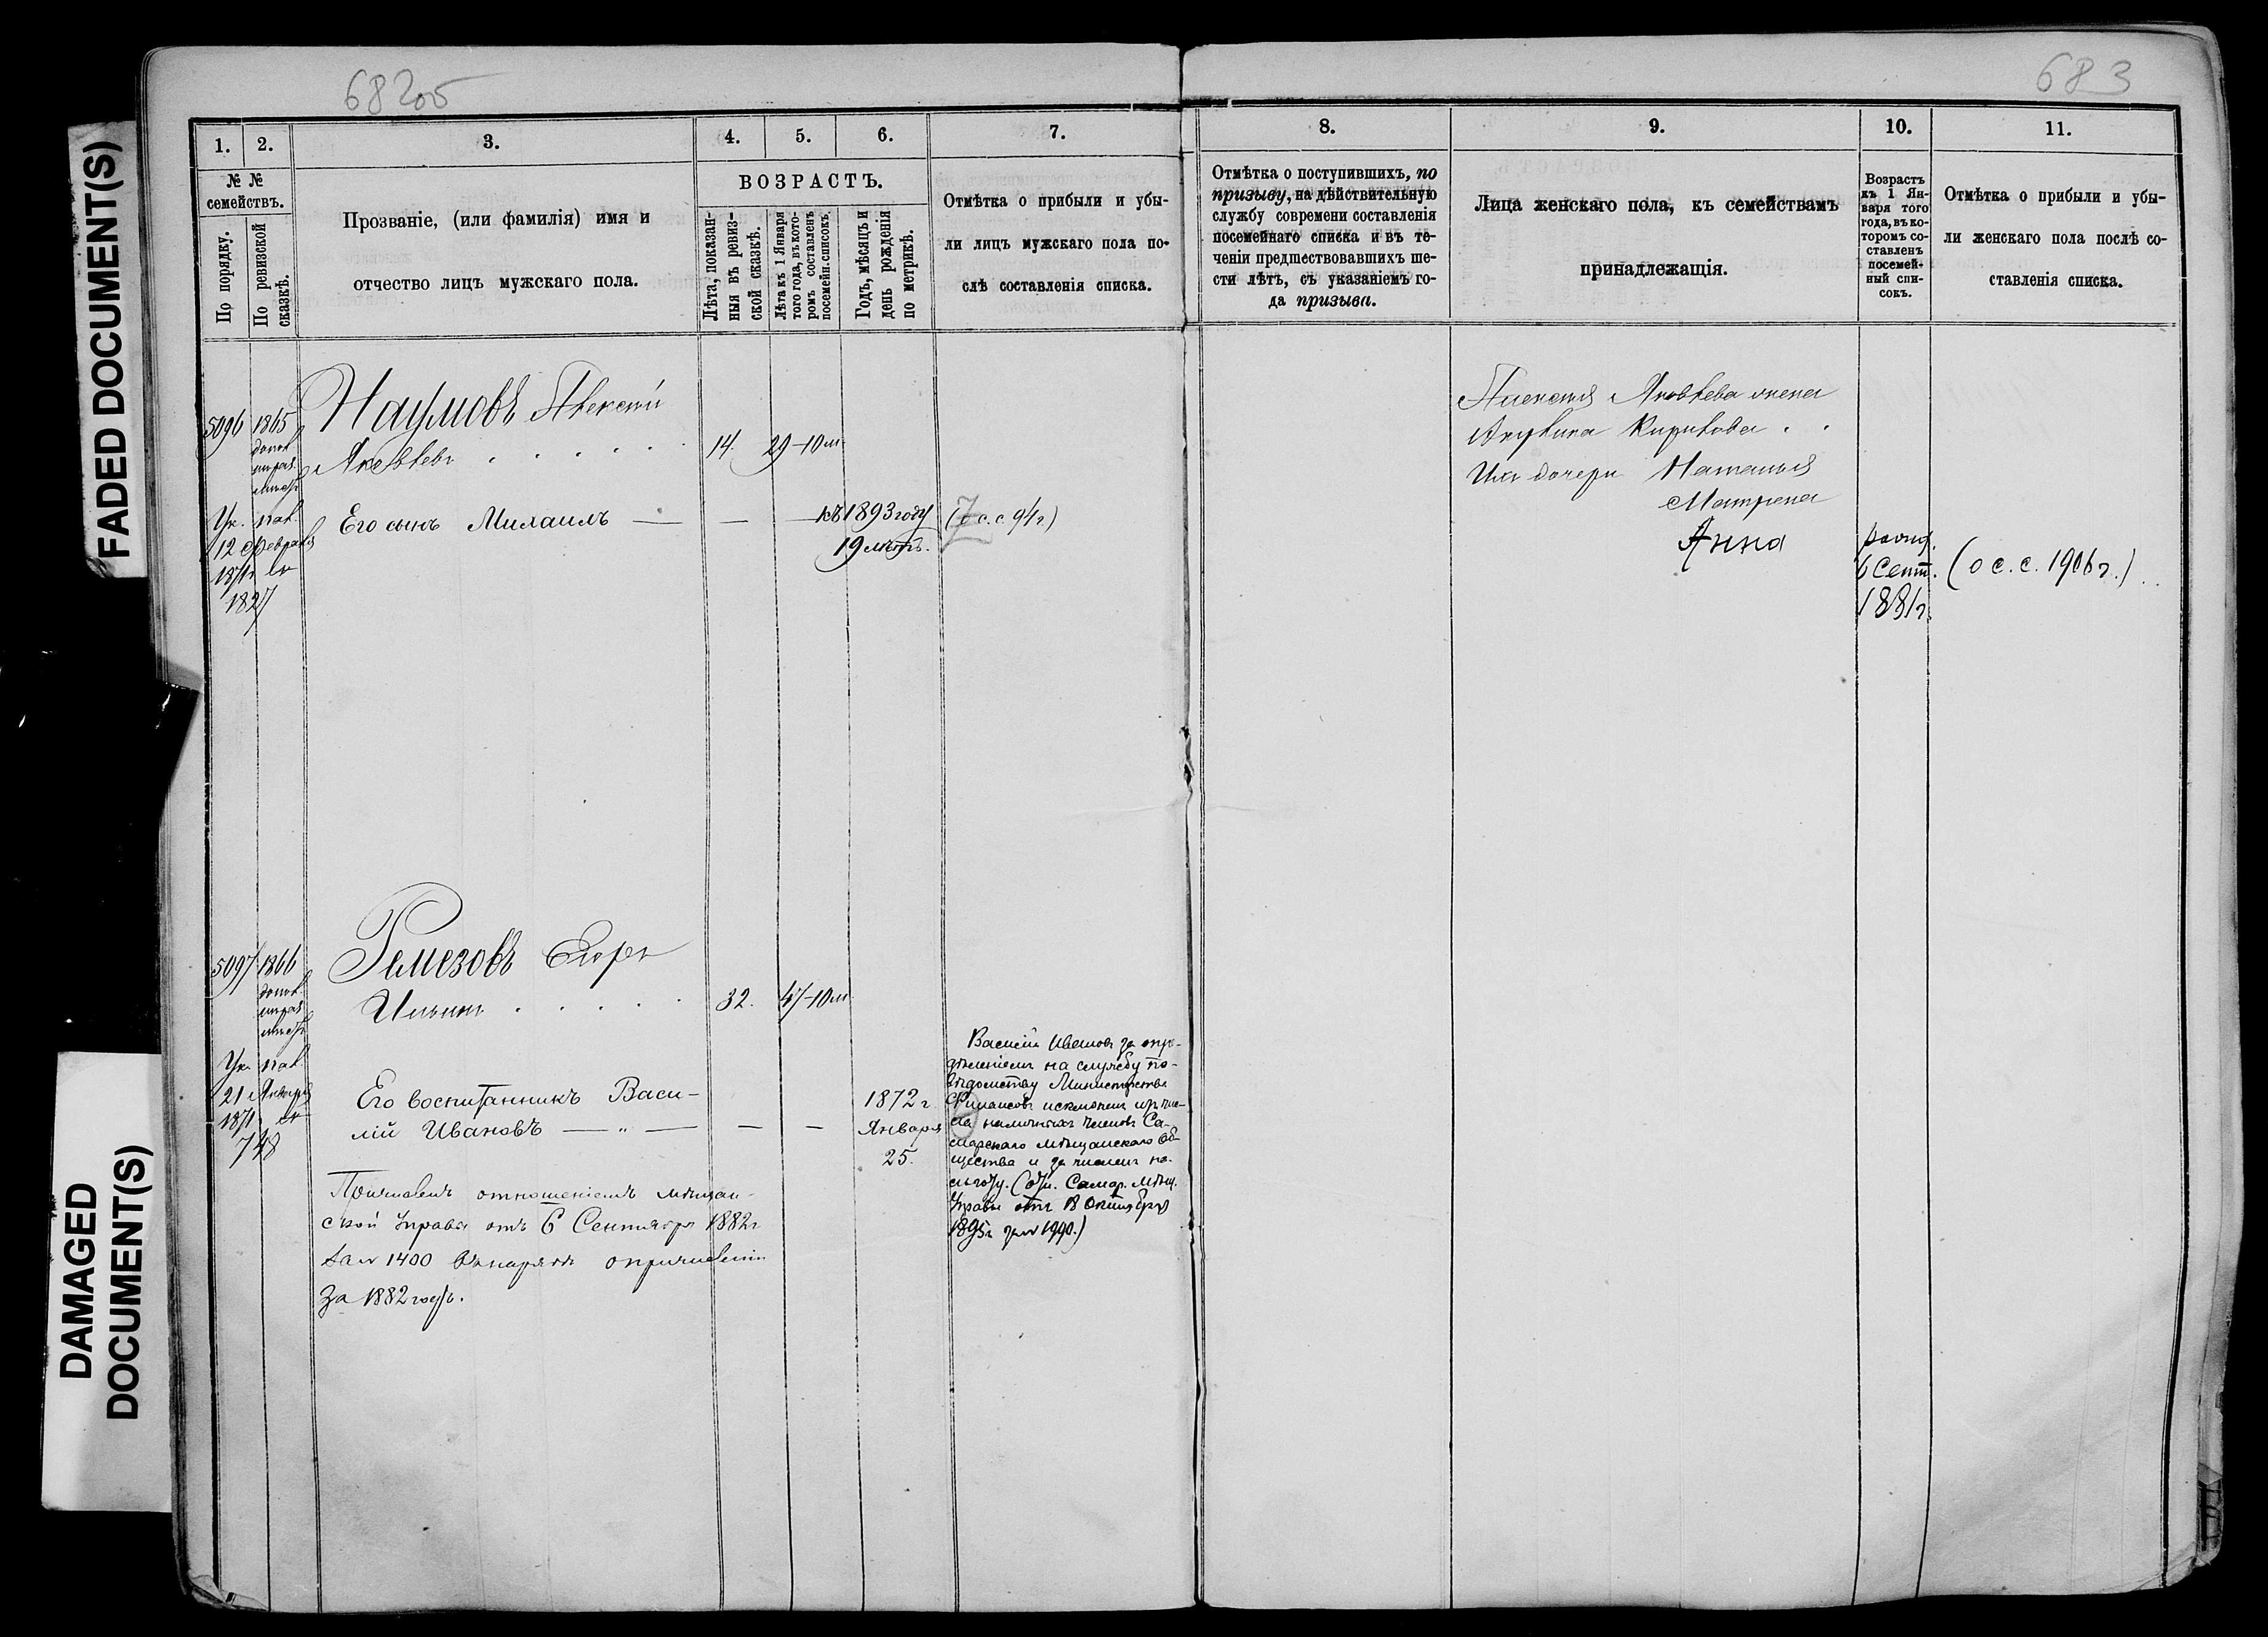 FADED DOCUMENT(S)
DAMAGED
DOCUMENT(S)
682об
683
1.
2.
3.
4.
5.
6.
7.
8.
9.
10.
11.
№ №
семействъ.
По порядку.
По ревизской
сказкѣ.
Прозваніе, (или фамилія) имя и
отчество лицъ мужскаго пола.
ВОЗРАСТЪ.
Лѣта, показан-
ныя въ ревиз-
ской сказкѣ.
Лѣта къ 1 Января
того года, въ кото-
ромъ составленъ
посемейн. списокъ.
Годъ, мѣсяцъ и
день рожденія
по метрикѣ.
Отмѣтка о прибыли и убы-
ли лицъ мужскаго пола по-
слѣ составленія списка.
Отмѣтка о поступившихъ, по
призыву, на дѣйствительную
службу современи составленія
посемейнаго списка и въ те-
ченіи предшествовавшихъ ше-
сти лѣтъ, съ указаніемъ го-
да призыва.
Лица женскаго пола, къ семействамъ
принадлежащія.
Возрастъ
къ 1 Ян-
варя того
года, въ ко-
торомъ со-
ставленъ
посемей-
ный спи-
сокъ.
Отмѣтка о прибыли и убы-
ли женскаго пола послѣ со-
ставленія списка.
5096 1865 Наумовъ Алексѣй
Яковлевъ 14. 29-10м
Ук. пал.
12 Февраля
1871г
1827
Его сынъ Михаилъ — — — къ 1893 году (о с. с. 94г)
19 лѣтъ.
Алексѣя Яковлева жена
Акулина Кирилова
Ихъ дочери Наталья
Матрена
Анна рожд.
6 Сент. (о с. с. 1906г.)
1881г.
5097 1866 Ремезовъ Егоръ
Ильинъ 32. 47-10м
Ук. пал.
21 Января
1871г
748
Его воспитанникъ Васи-
лій Ивановъ — „ — — — 1872г
Января
25.
Василій Ивановъ за опре-
дѣленіемъ на службу по-
вѣдомству Министерства
Финансовъ исключенъ изъ чис-
ла наличныхъ членовъ Са-
марскаго мѣщанскаго об-
щества
(отн. Самар. мѣщ.
Управы отъ 18 Октября
1895г за № 1990.)
Причисленъ отношеніемъ мѣщан-
ской Управы отъ 6 Сентября 1882г
за № 1400 о причисленіи
за 1882 годъ.